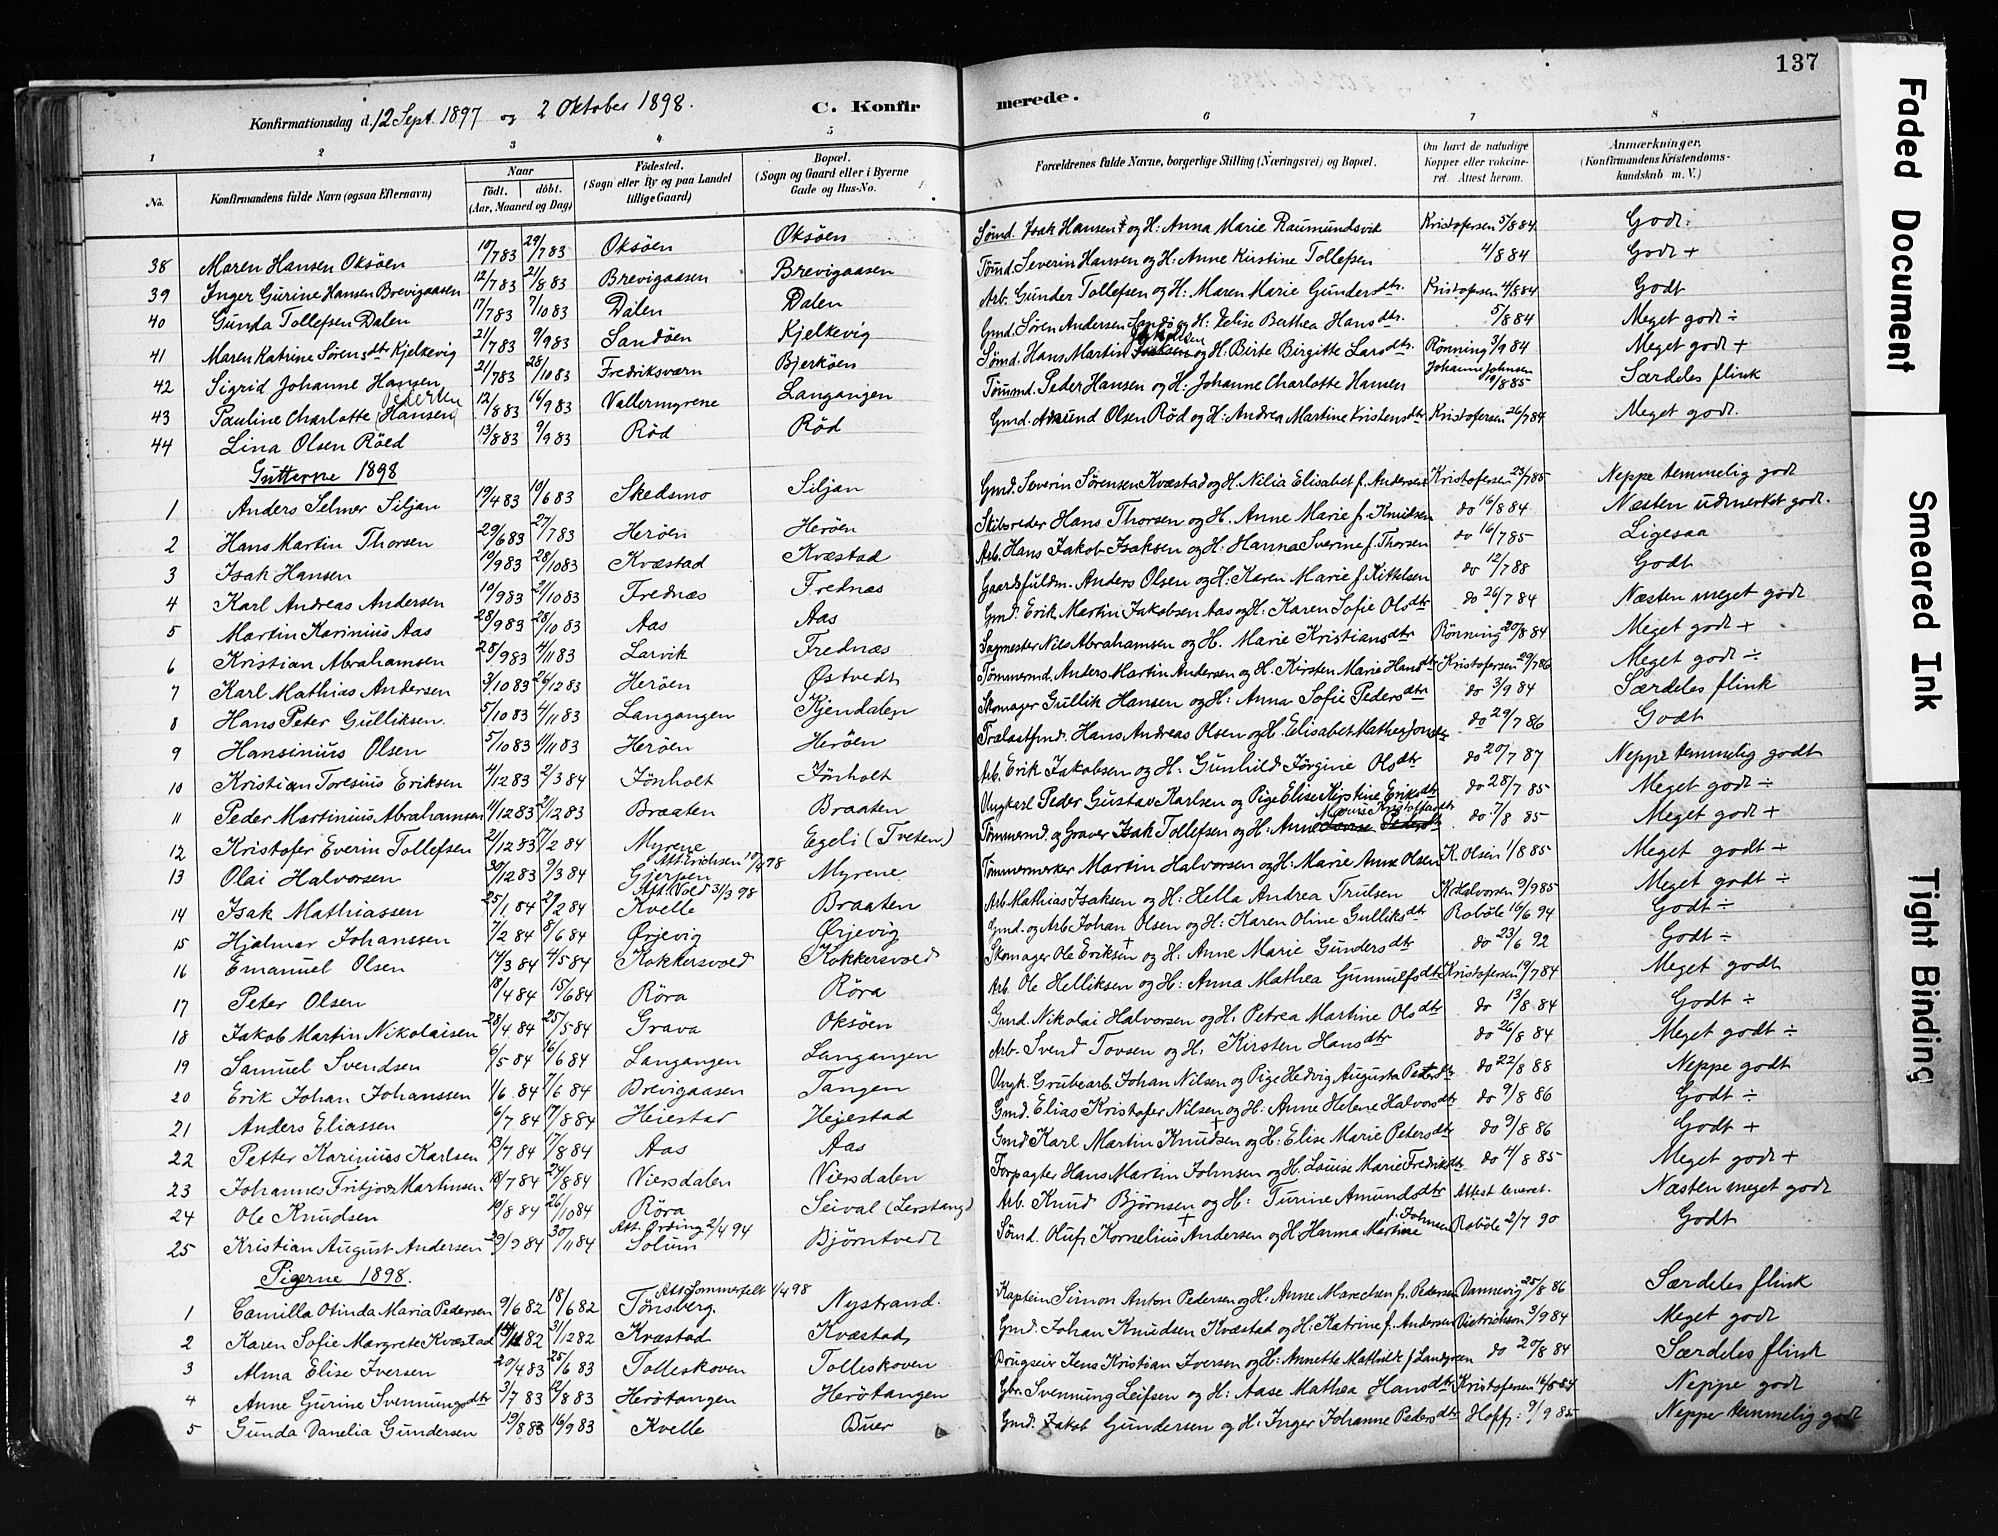 137
Konfirmationsdag d. 12 Sept. 1897 og 2 Oktober 1898.
C. Konfirmerede.
1 2 3 4 5 6 7 8
No. Konfirmandens fulde Navn (ogsaa Efternavn) Naar födt. döbt. (Aar, Maaned og Dag) Födested. (Sogn eller By og paa Landet tillige Gaard) Bopæl. (Sogn og Gaard eller i Byerne Gade og Hus-No. Forældrenes fulde Navne, borgerlige Stilling (Næringsvei) og Bopæl. Om havt de naturlige Kopper eller vakcineret. Attest herom. Anmærkninger. (Konfirmandens Kristendomskundskab m. V.)
38 Maren Hansen Oksöen 10/783 29/783 Oksöen Oksöen Sömd. Isak Hansen † og H: Anna Marie Raumundsvik Kristofersen 5/884 Godt
39 Inger Gurine Hansen Brevigaasen 12/783 21/883 Brevigaasen Brevigaasen Tömd. Severin Hansen og H: Anne Kirstine Tollefsen 4/884 Godt +
40 Gunda Tollefsen Dalen 17/783 7/1083 Dalen Dalen Arb. Gunder Tollefsen og H: Maren Marie Gundersdtr. Kristofersen 4/884 Godt
41 Maren Katrine Sörensdtr Kjelkevig 21/783 9/983 Sandöen Kjelkevig Gmd. Sören Andersen Sandö og H: Elise Berthea Hansdtr. 5/884 Meget godt ÷
42 Sigrid Johanne Hansen 21/783 28/1083 Fredriksværn Bjerköen Sömd. Hans Martin og H: Birte Birgitte Larsdtr. Rönning 3/984 Meget godt +
43 Pauline Charlotte (Hansen) 12/883 16/983 Vallermyrene Langangen Tömmd. Peder Hansen og H: Johanne Charlotte Hansen Johanne Johnsen 19/885 Særdeles flink
44 Lina Olsen Röed 13/883 9/983 Röd Röd Gmd. Amund Olsen Röd og H: Andrea Martine Kristensdtr Kristofersen 26/784 Meget godt.
Gutterne 1898
1 Anders Selmer Siljan 19/483 10/683 Skedsmo Siljan Gmd. Severin Sörensen Kvæstad og H. Nilia Elisabet f. Andersen Kristofersen 23/785 Neppe temmelig godt
2 Hans Martin Thorsen 29/683 27/783 Heröen Heröen Skibsreder Hans Thorsen og H. Anne Marie f. Knudsen do 16/884 Næsten udmerket godt.
3 Isak Hansen 19/983 28/1083 Kvæstad Kvæstad Arb. Hans Jakob Isaksen og H: Hanna Sverine f. Thorsen do 16/785 Ligesaa
4 Karl Andreas Andersen 10/983 21/1083 Frednæs Frednæs Gaardsfuldm. Anders Olsen og H: Karen Marie f. Kittelsen do 12/788 Godt
5 Martin Karinius Aas 28/983 28/1083 Aas Aas Gmd. Erik Martin Jakobsen Aas og H: Karen Sofie Olsdtr do 26/784 Næsten meget godt
6 Kristian Abrahamsen 28/983 4/1183 Larvik Frednæs Sagmester Nils Abrahamsen og H. Marie Kristiansdtr Rönning 20/884 Meget godt +
7 Karl Mathias Andersen 3/1083 26/1283 Heröen Östvedt Tömmermd. Anders Martin Andersen og H. Kirsten Marie Hansdtr Kristofersen 29/786 Meget godt ÷
8 Hans Peter Gulliksen. 5/1083 4/1183 Langangen Kjendalen Skomager Gullik Hansen og H: Anna Sofie Pedersdtr do 3/984 Særdeles flink
9 Hansinius Olsen 5/1083 11/1183 Heröen Heröen Trælastfmd. Hans Andreas Olsen og H. Elisabet Mathea Jonsdtr do 29/786 Godt
10 Kristian Toresius Eriksen 4/1283 2/384 Jönholt Jönholt Arb. Erik Jakobsen og H: Gunhild Jörgine Olsdtr do 20/787 Neppe temmelig godt
11 Peder Martinius Abrahamsen 11/1283 2/1283 Braaten Braaten Ungkarl Peder Gustav Karlsen og Pige Elise Kirstine Eriksdtr do 28/785 Meget godt ÷
12 Kristofer Everin Tollefsen 21/1283 17/284 Myrene Egeli (Tveten) Tömmermd. og Graver Isak Tollefsen og H: Anne Marie Kristoffersdtr do 7/885 Meget godt +
13 Olai Halvorsen 30/1283 9/384 Gjerpen Att. Erichsen 10/498 Myrene Tömmermerker Martin Halvorsen og H: Marie Anne Olsen K. Olsen 1/885 Meget godt +
14 Isak Mathiassen 25/184 29/284 Kvelle Att. Vold 31/398 Braaten Arb. Mathias Isaksen og H: Hella Andrea Trulsen K. Halvorsen 9/985 Meget godt ÷
15 Hjalmar Johanssen 7/284 8/684 Ørjevig Ørjevig Gmd. og Arb Johan Olsen og H: Karen Oline Gulliksdtr Roböle 16/694 Godt ÷
16 Emanuel Olsen 14/384 4/584 Kokkersvold Kokkersvold Skomager Ole Eriksen † og H: Anne Marie Gundersdtr do 23/692 Godt ÷
17 Peter Olsen 18/484 15/684 Röra Röra Arb. Ole Helliksen og H: Anna Mathea Gunnulfsdtr Kristofersen 19/784 Meget godt
18 Jakob Martin Nikolaisen 28/484 25/584 Grava Oksöen Gmd. Nikolai Halvorsen og H. Petrea Martine Olsdtr do 13/884 Godt ÷
19 Samuel Svendsen 6/584 16/684 Langangen Langangen Arb. Svend Tovsen og H. Kirsten Hansdtr do 26/884 Meget godt ÷
20 Erik Johan Johanssen 1/684 7/684 Brevigaasen Tangen Ungk. Grubearb. Johan Nilsen og Pige Hedvig Augusta Petersdtr do 22/888 Neppe godt
21 Anders Eliassen 6/784 17/884 Heiestad Heiestad Gmd. Elias Kristofer Nilsen og H: Anne Helene Halvorsdtr do 9/886 Godt ÷
22 Petter Karinius Karlsen 13/784 17/884 Aas Aas Gmd Karl Martin Knudsen † og H: Elise Marie Petersdtr do 9/886 Godt +
23 Johannes Fritjov Martinsen 18/784 24/884 Viersdalen Viersdalen Forpagter Hans Martin Johnsen og H. Louise Marie Fredriksdtr do 4/885 Meget godt +
24 Ole Knudsen 19/884 26/1084 Röra Seival (Lerstang) Arb. Knud Björnsen og H: Turine Amundsdtr Attest leveret. Næsten meget godt
25 Kristian August Andersen 29/984 30/1184 Solum Att. Örding 2/494 Björntvedt Sömd. Oluf Kornelius Andersen † og H Hanna Martine f. Johnsen Roböle 2/790 Godt
Pigerne 1898.
1 Camilla Otinda Maria Pedersen 9/682 18/682 Tönsberg. Att. Sommerfelt 1/498 Nystrand. Kaptein Simon Anton Pedersen og H: Anne Marechen f. Pedersen Dannevig 25/886 Særdeles flink
2 Karen Sofie Margrete Kvæstad 14/1182 31/1282 Kvæstad Kvæstad Gmd. Johan Knudsen Kvæstad og H: Katrine f. Andersen Dietrichson 3/984 Meget godt
3 Alma Elise Iversen 20/483 25/683 Tolleskoven Tolleskoven Brugseier Jens Kristian Iversen og H: Annette Mathilde f. Landgreen do 20/884 Særdeles flink
4 Anne Gurine Svenningsdtr 3/783 12/883 Herötangen Herötangen Gbr. Svennung Leifsen og H: Aase Mathea Hansdtr Kristofersen 16/884 Neppe godt
5 Gunda Danelia Gundersen 19/883 16/983 Kvelle Buer Gmd. Jakob Gundersen og H: Inger Johanne Pedersdtr Hoff: 9/985 Neppe temmelig godt
Faded Document
Smeared Ink
Tight Binding